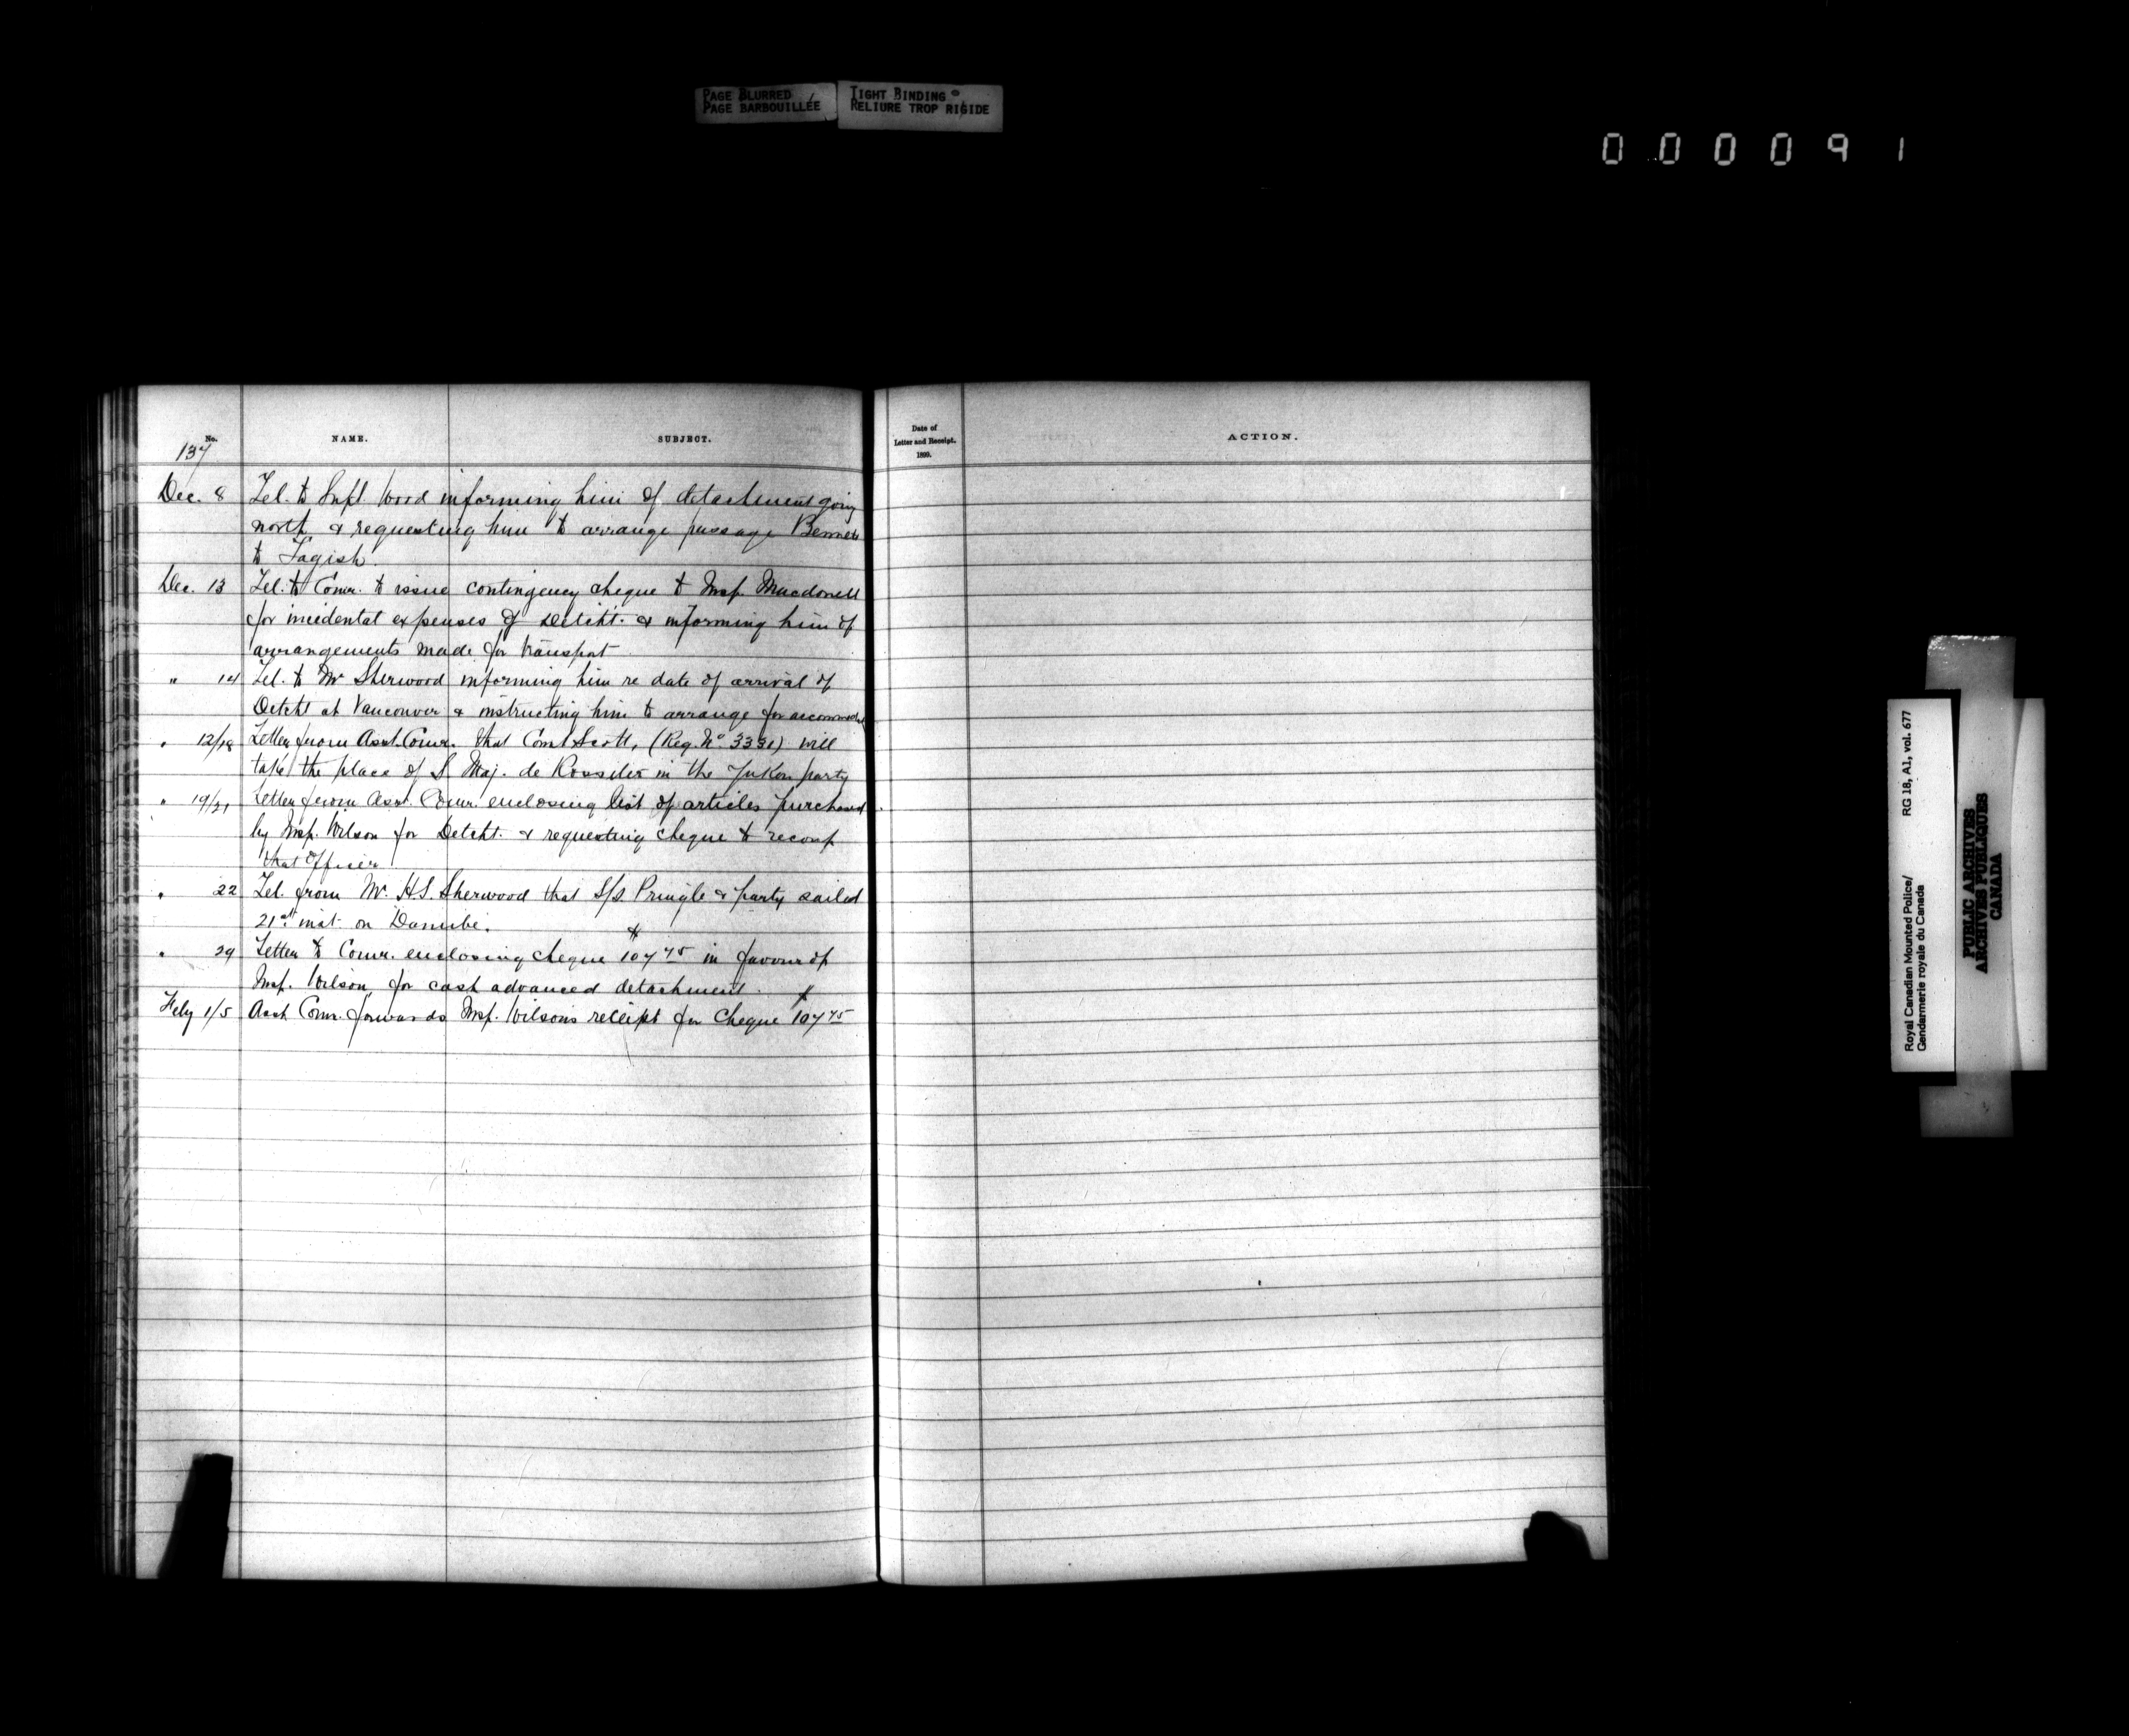 PAGE BLURRED
PAGE BARBOUILLÉE
TIGHT BINDING
RELIURE TROP RIGIDE
000091
No.
NAME.
SUBJECT.
137
Dec. 8 Tel. to Supt. Wood informing him of detachment going
north & requesting him to arrange passage Bennett
to Tagish.
Dec. 13 Tel. to Comr. to issue contingency cheque to Insp. Macdonell
for incidental expenses of Detcht. & informing him of
arrangements made for transport
" 14 Tel. to Mr Sherwood informing him re date of arrival of
Detcht at Vancouver & instructing him to arrange for
" 12/18 Letter from Asst. Comr. that Const Scott, (Reg. No. 3331) will
take the place of S. Maj. de Rossiter in the Yukon party
" 19/21 Letter from Asst. Comr. enclosing list of articles purchased
by Insp. Wilson for Detcht. & requesting cheque to recoup
that Officer
" 22 Tel. from Mr. H.S. Sherwood that S/S. Pringle & party sailed
21st inst. on Danube.
" 29 Letter to Comr. enclosing cheque $107 45 in favour of
Insp. Wilson, for cash advanced detachment.
Feby 1/5 Asst Comr. forwards Insp. Wilson's receipt for Cheque $107 45
Date of
Letter and Receipt.
1899.
ACTION.
Royal Canadian Mounted Police/
Gendarmerie royale du Canada
RG 18, A1, vol. 677
PUBLIC ARCHIVES
ARCHIVES PUBLIQUES
CANADA